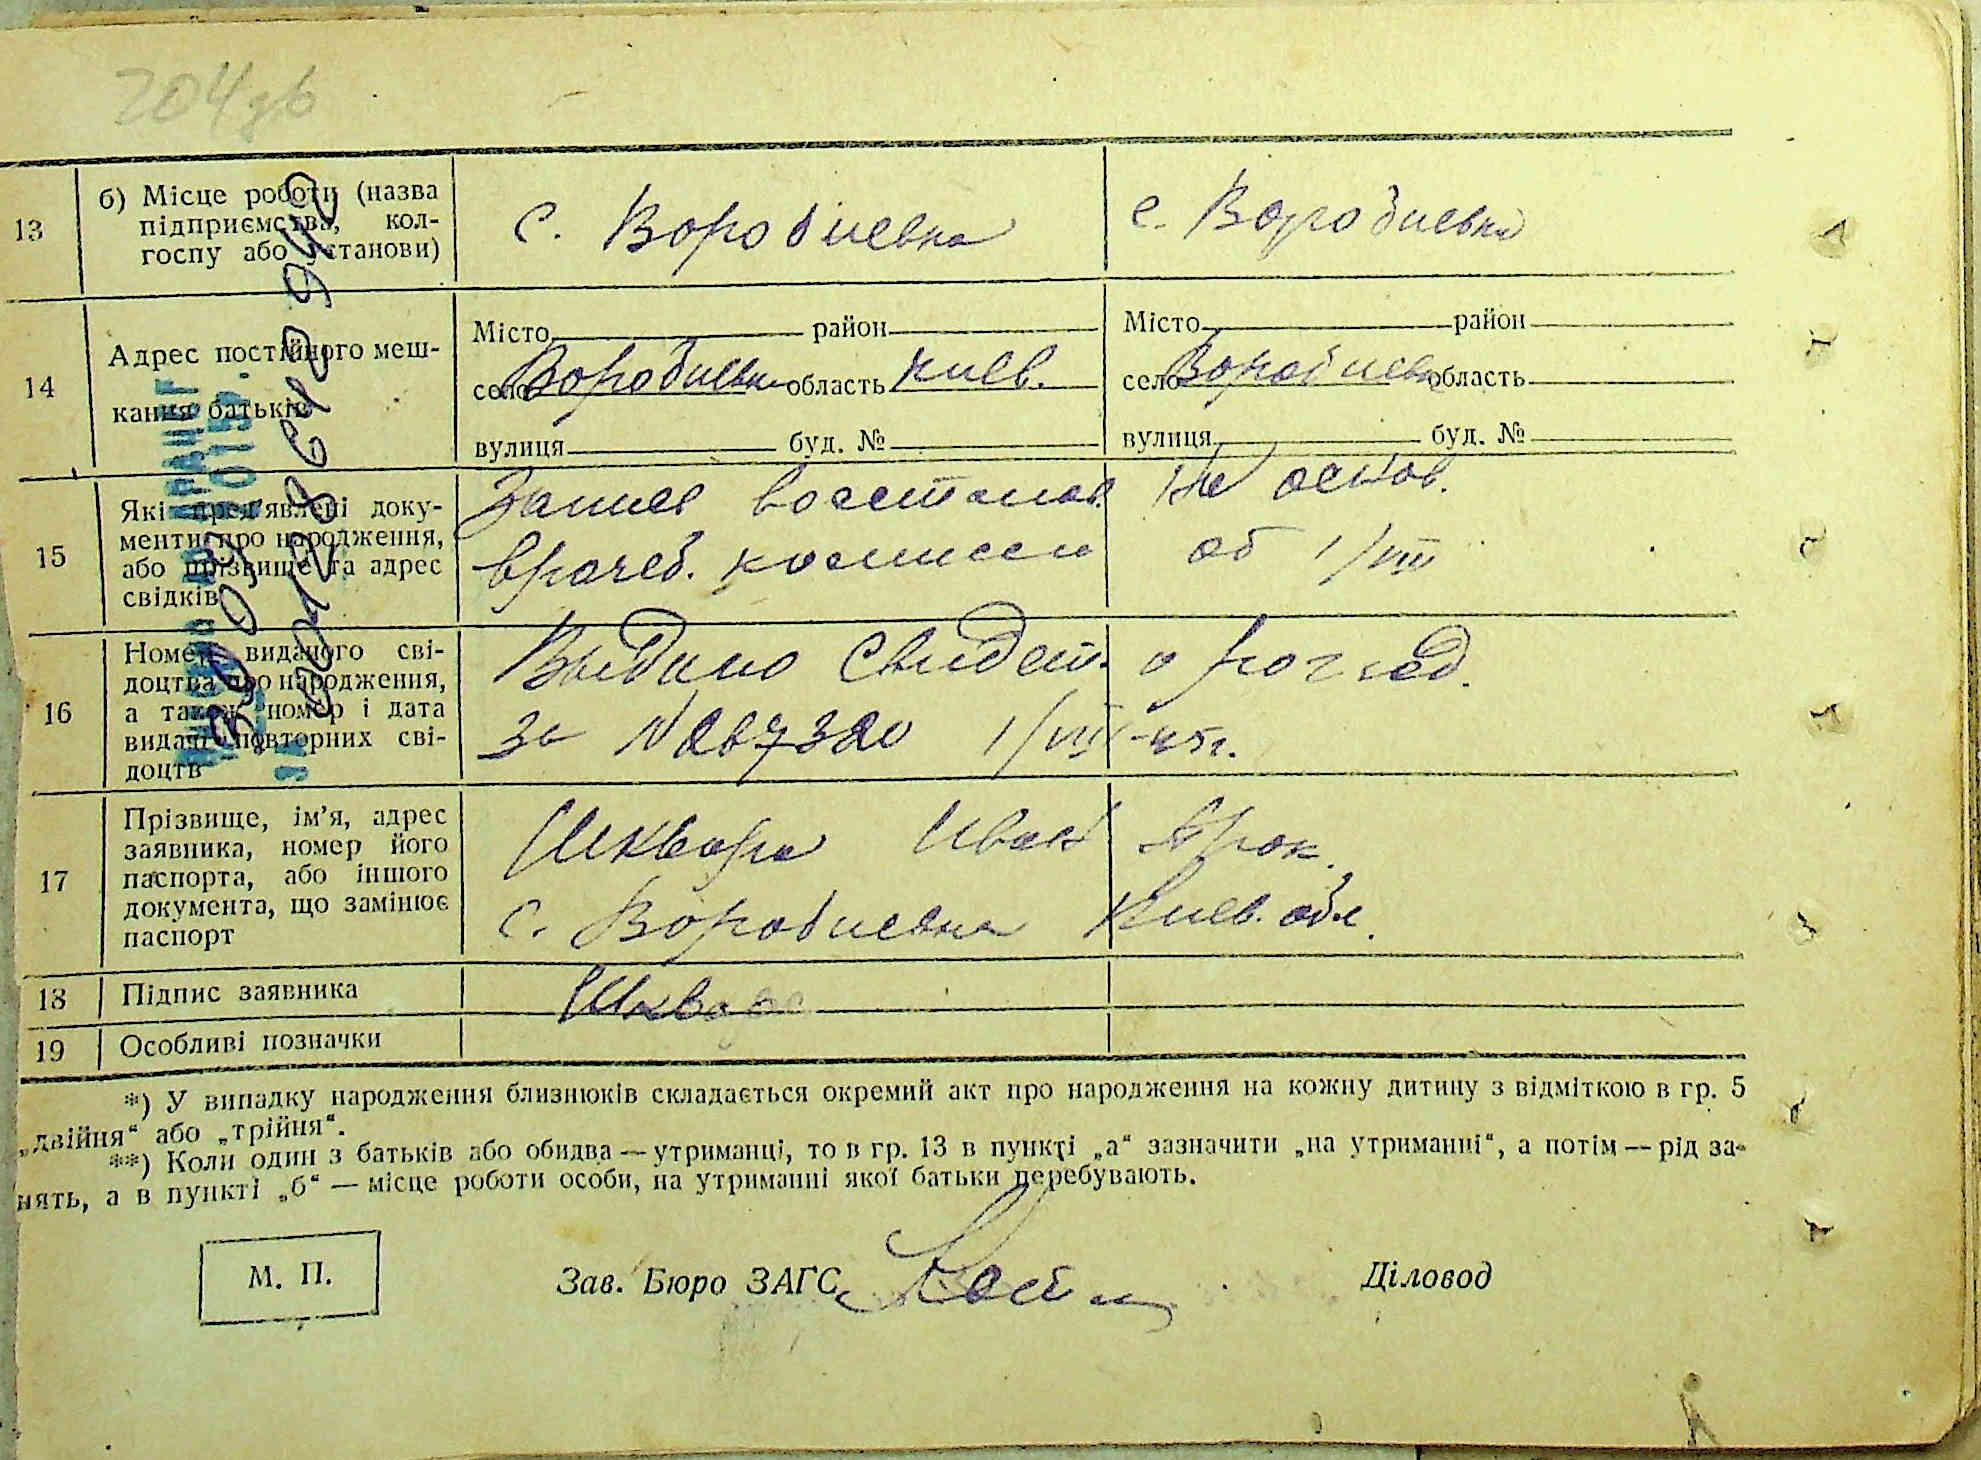 204зв
13
б) Місце роботи (назва
підприємства, кол-
госпу або установи)
с. Воробиевка
с. Воробиевка
14
Адрес постійного меш-
кання батьків
Місто район
село Воробиевка область Киев.
вулиця буд. №
Місто район
село Воробиевка область
вулиця буд. №
15
Які пред'явлені доку-
менти про народження,
або прізвище та адрес
свідків
Запись восстанов. на основ.
врачеб. комиссии от 1/VIII
16
Номер виданого сві-
доцтва про народження,
а також номер і дата
видачі повторних сві-
доцтв
Выдано свидет. о рожд.
за N 267320 1/VIII-45г.
17
Прізвище, ім'я, адрес
заявника, номер його
паспорта, або іншого
документа, що замінює
паспорт
Шквара Иван
с. Воробиевка Киев. обл.
18
Підпис заявника
Шквара
19
Особливі позначки
*) У випадку народження близнюків складається окремий акт про народження на кожну дитину з відміткою в гр. 5
„двійня“ або „трійня“.
**) Коли один з батьків або обидва — утриманці, то в гр. 13 в пункті „а“ зазначити „на утриманні“, а потім — рід за-
нять, а в пункті „б“ — місце роботи особи, на утриманні якої батьки перебувають.
М. П.
Зав. Бюро ЗАГС
Діловод